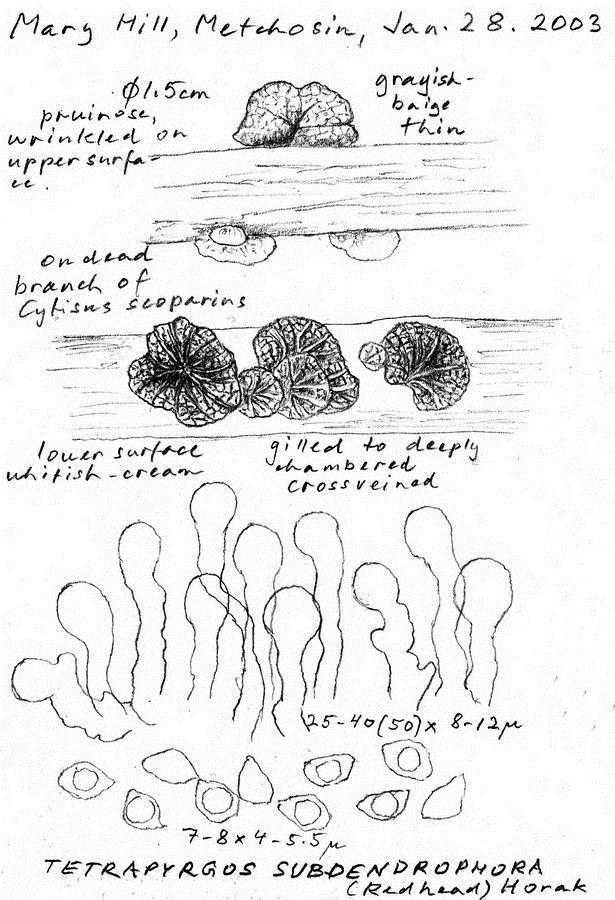 Mary Hill, Metchosin, Jan. 28. 2003
Ø1.5cm
pruinose,
wrinkled on
upper surfa-
ce.
grayish-
baige
thin
on dead
branch of
Cytisus scoparius
lower surface
whitish-cream
gilled to deeply
chambered
crossveined
25-40(50)x 8-12µ
7-8x4-5.5µ
TETRAPYRGOS SUBDENDROPHORA
(Redhead) Horak